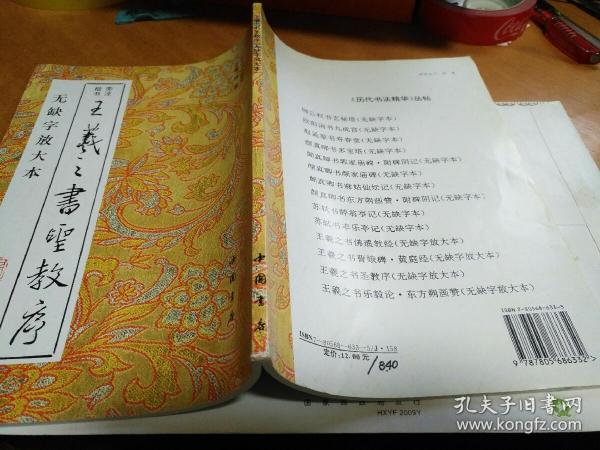 王羲之書聖教序
无缺字放大本
中国书店
《历代书法精华》丛帖
柳公权书玄秘塔(无缺字本)
欧阳询书九成宫(无缺字本)
赵孟頫书寿春堂(无缺字本)
颜真卿书多宝塔(无缺字本)
颜真卿书郭家庙碑·附碑阴记(无缺字本)
颜真卿书颜家庙碑(无缺字本)
颜真卿书麻姑仙坛记(无缺字本)
颜真卿书东方朔画赞·附碑阴记(无缺字本)
苏轼书醉翁亭记(无缺字本)
苏轼书丰乐亭记(无缺字本)
王羲之书佛遗教经(无缺字放大本)
王羲之书曹娥碑·黄庭经(无缺字放大本)
王羲之书圣教序(无缺字放大本)
王羲之书乐毅论·东方朔画赞(无缺字放大本)
ISBN7-80568-633-5/J·158
定价:12.00
/840
ISBN 7-80568-633-5
9 787805 686332 >
HXYF 2009Y
孔夫子旧书网
www.kongfz.com